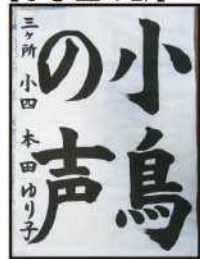 小鳥
の声
三ヶ所 小四 本田 ゆり子